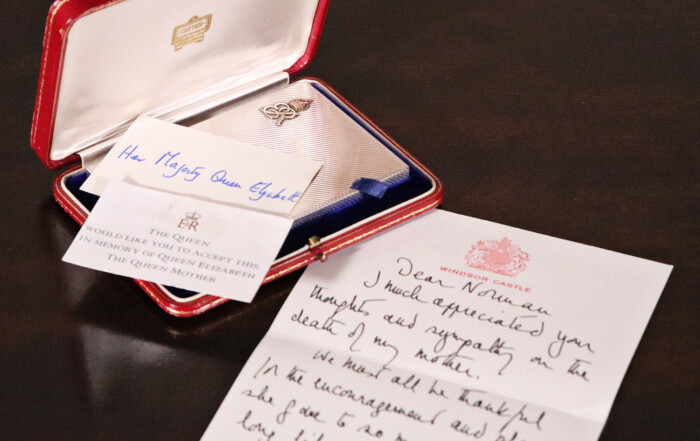 Her Majesty Queen Elizabeth
E R
THE QUEEN
WOULD LIKE YOU TO ACCEPT THIS,
IN MEMORY OF QUEEN ELIZABETH
THE QUEEN MOTHER
WINDSOR CASTLE
Dear Norman
I much appreciated your
thoughts and sympathy on the
death of my mother.
We must all be thankful
for the encouragement and
she gave to so
long